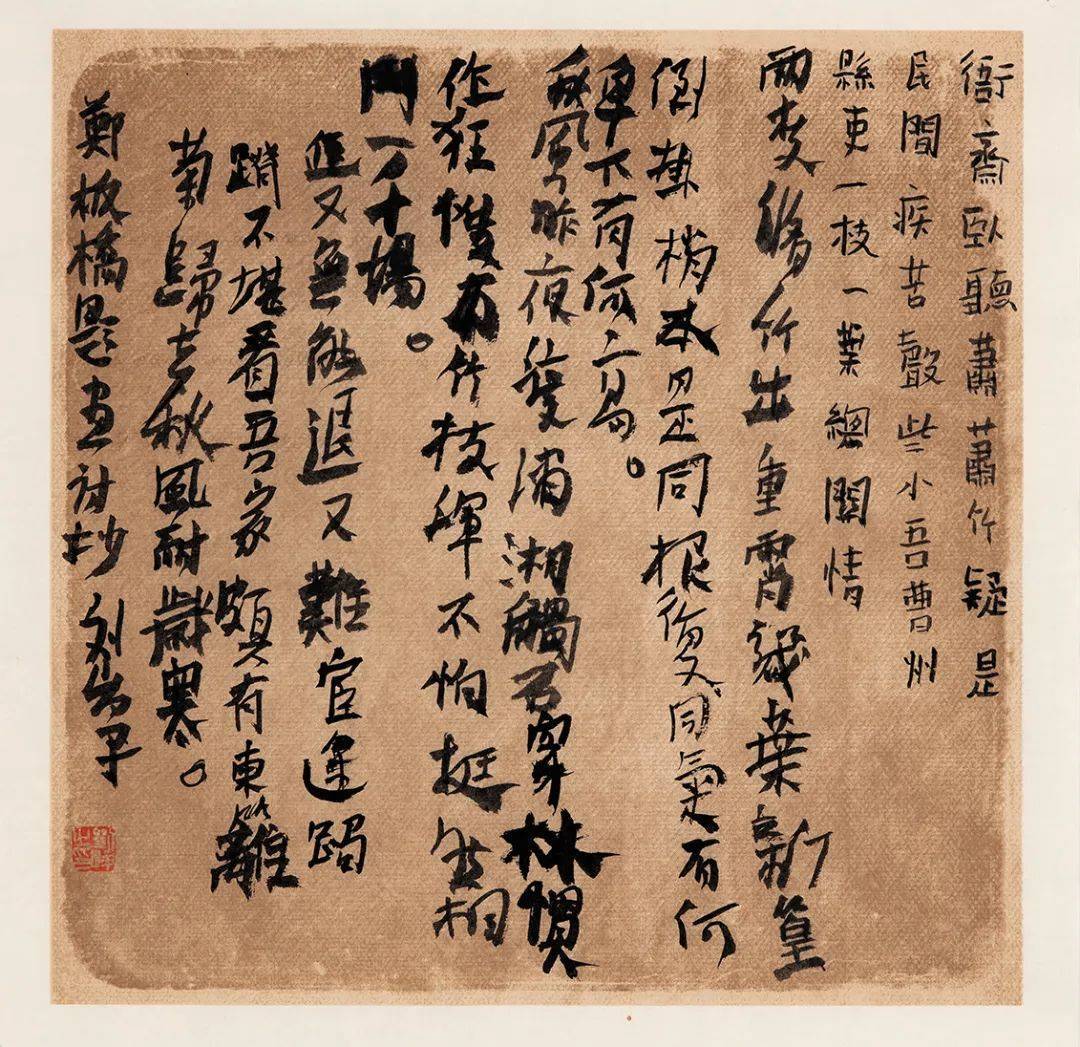 衙齋臥聽蕭蕭竹疑是
民間疾苦聲些小吾曹州
縣吏一枝一葉總關情
兩枝脩竹出重霄幾葉新篁
倒掛梢本是同根復同氣有何
卑下有何高。
秋風昨夜發瀟湘觸石穿林慣
作狂惟有竹枝渾不怕挺然相
鬥一万十場。
進又無能退又難宦途跼
蹐不堪看吾家頗有東籬
菊歸去秋風耐歲寒。
鄭板橋題畫詩抄 刘子